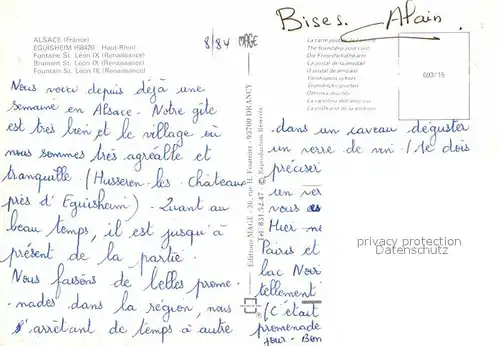 ALSACE (France)
EGUISHEIM (68420 Haut-Rhin)
Fontaine St. Léon IX (Renaissance)
Brunnen St. Léon IX (Renaissance)
Fountain St. Léon IX (Renaissance)
8/84 MAGE
Bises. Alain
La carte postale de l'amitié
The friendship post card
Die Freundschaftskarte
La postal de la amistad
O postal da amizade
Vriendschaps
La cartolina dell'amicizia
693/15
Nous voici depuis déjà une
semaine en Alsace. Notre gîte
est très bien et le village où
nous sommes très agréable et
tranquille (Husseren les châteaux
près d'Eguisheim) - Quant au
beau temps, il est jusqu'à
présent de la partie.
Nous faisons de belles prome-
nades dans la région, nous
s'arrêtant de temps à autre
Editions MAGE - 36, rue H. Fournière - 93700 DRANCY
Tél: 831.52.47 - © Reproduction Réservée
dans un caveau déguster
un verre de vin (Je dois
préciser
un ver
vous as
Hier
Pairis et
lac Noir
tellement
(C'était
promenade
jour - Bon
privacy protection
Datenschutz